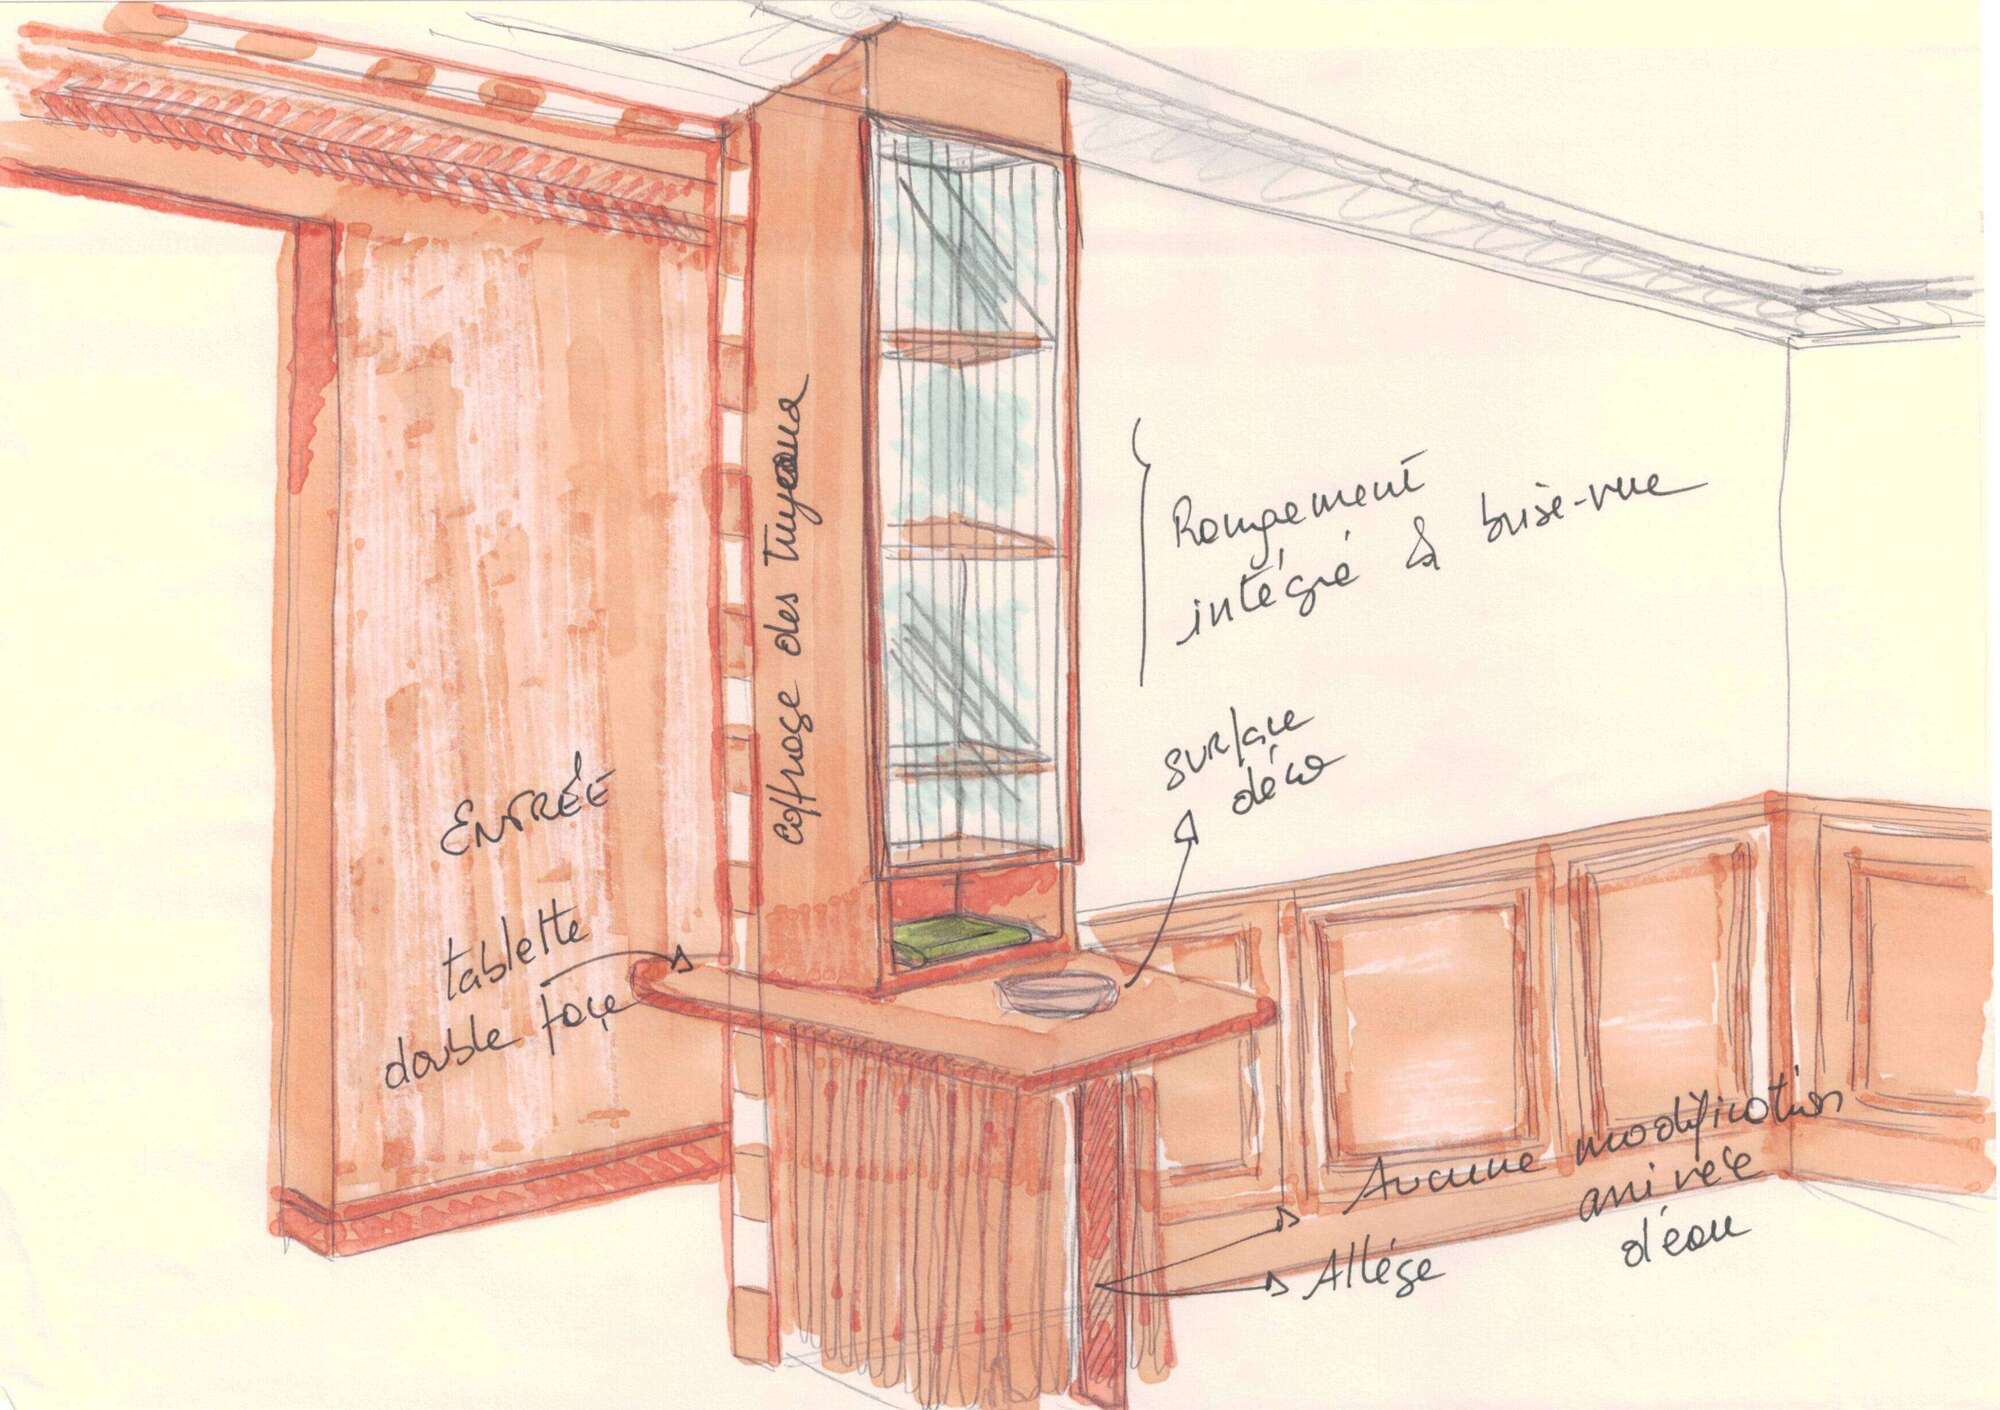 Coffrage des Tuyeaux
Rangement
intégré & brise-vue
surface
déco
ENTRÉE
tablette
double façe
Aucune modification
arrivée
d'eau
Allége